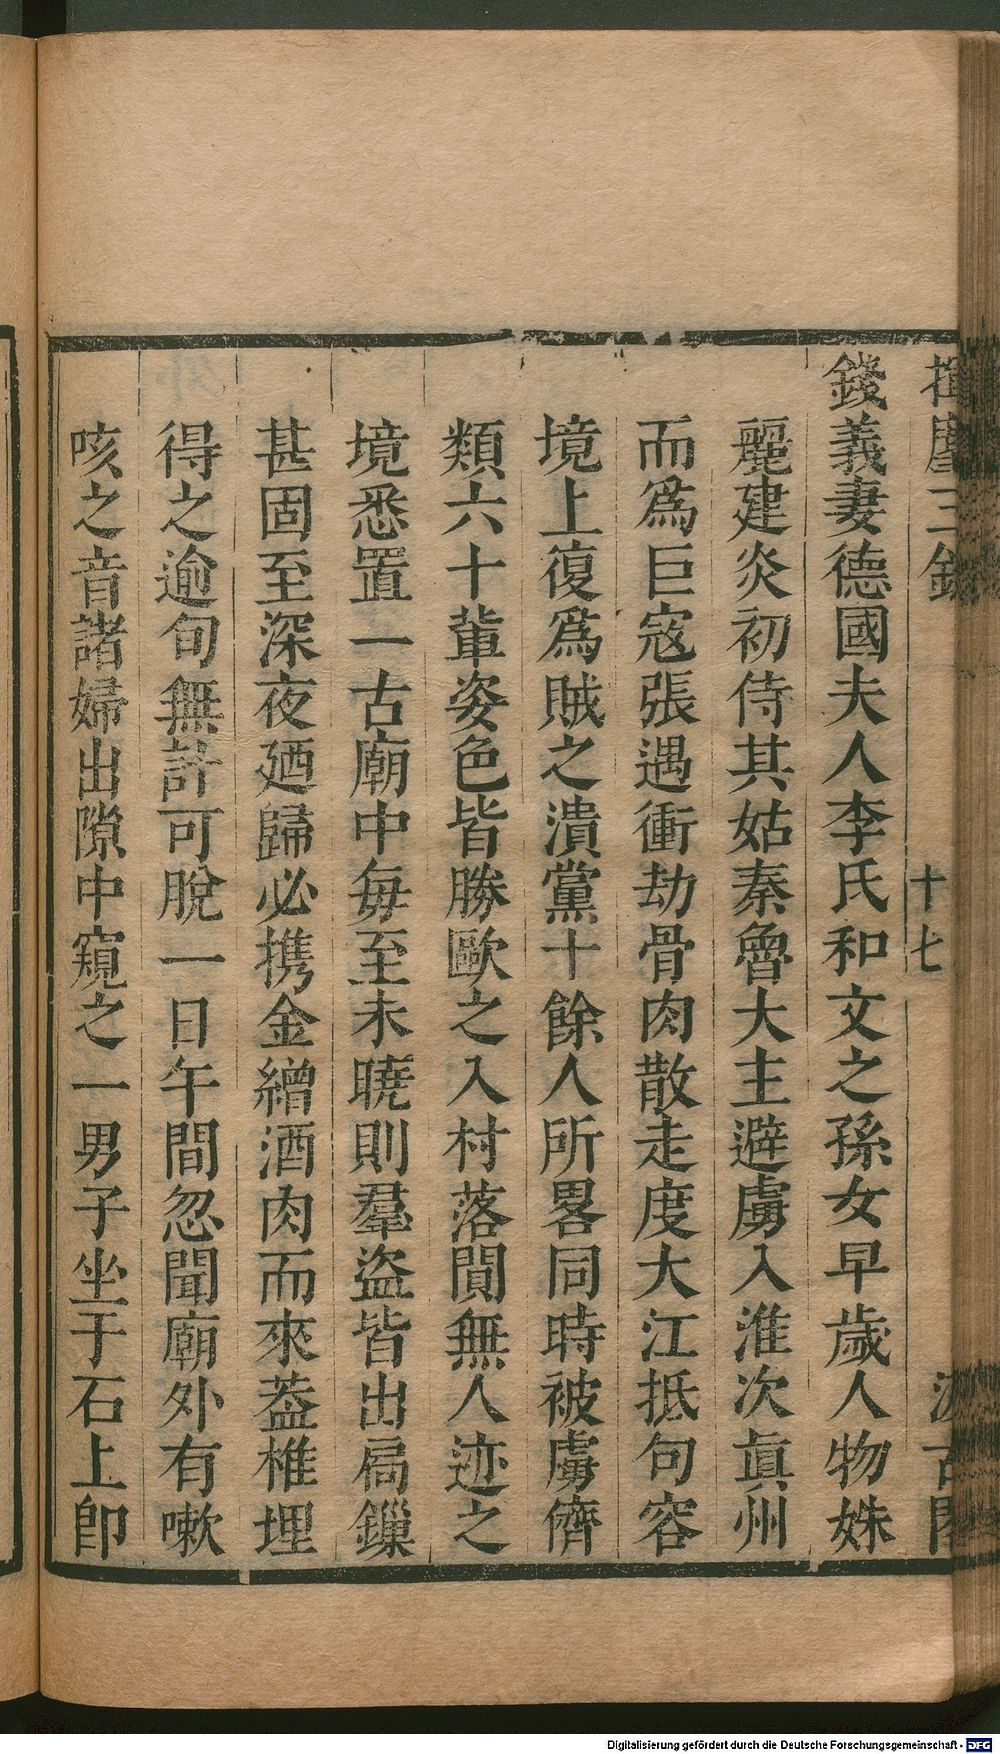 揮麈三錄
十七
汲古閣
錢義妻德國夫人李氏和文之孫女早歲人物姝
麗建炎初侍其姑秦魯大主避虜入淮次眞州
而爲巨宼張遇衝劫骨肉散走度大江抵句容
境上復爲賊之潰黨十餘人所畧同時被虜儕
類六十輩姿色皆勝歐之入村落閴無人迹之
境悉置一古廟中每至未曉則羣盜皆出扃鏁
甚固至深夜廼歸必携金繒酒肉而來葢椎埋
得之逾旬無計可脫一日午間忽聞廟外有嗽
咳之音諸婦出隙中窺之一男子坐于石上卽
Digitalisierung gefördert durch die Deutsche Forschungsgemeinschaft - DFG